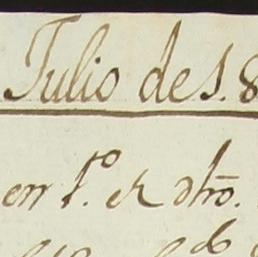 Julio de 18
en 1.º de dho.